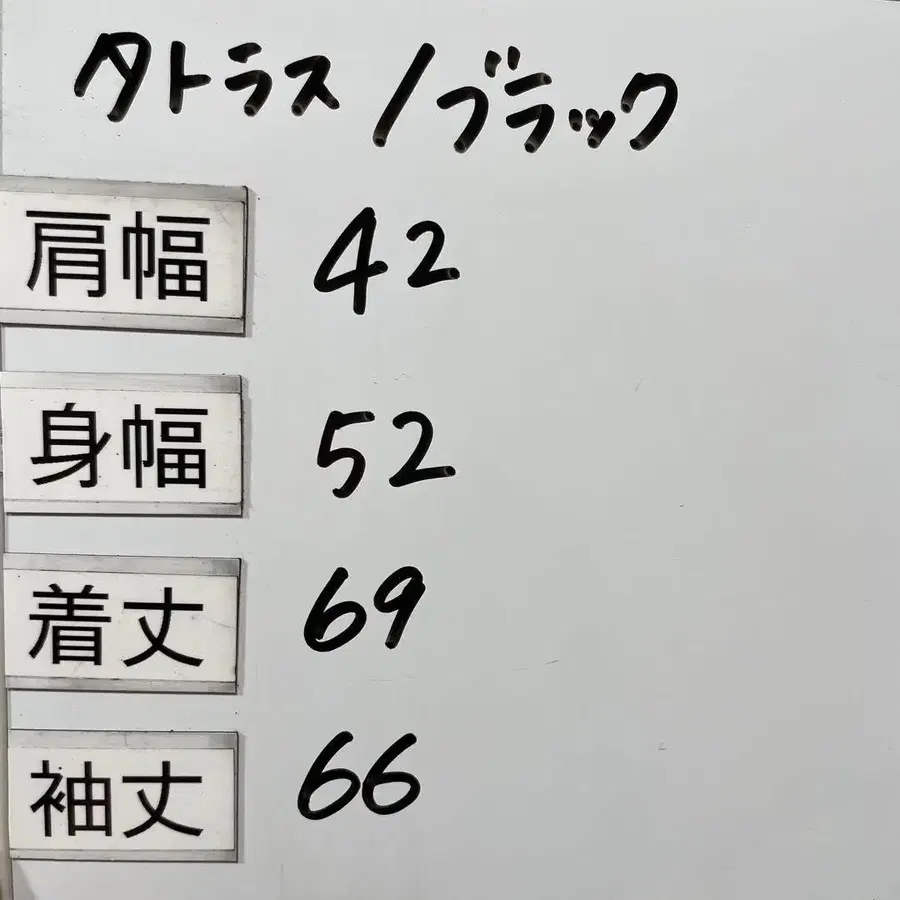 タトラス/ブラック
肩幅 42
身幅 52
着丈 69
袖丈 66